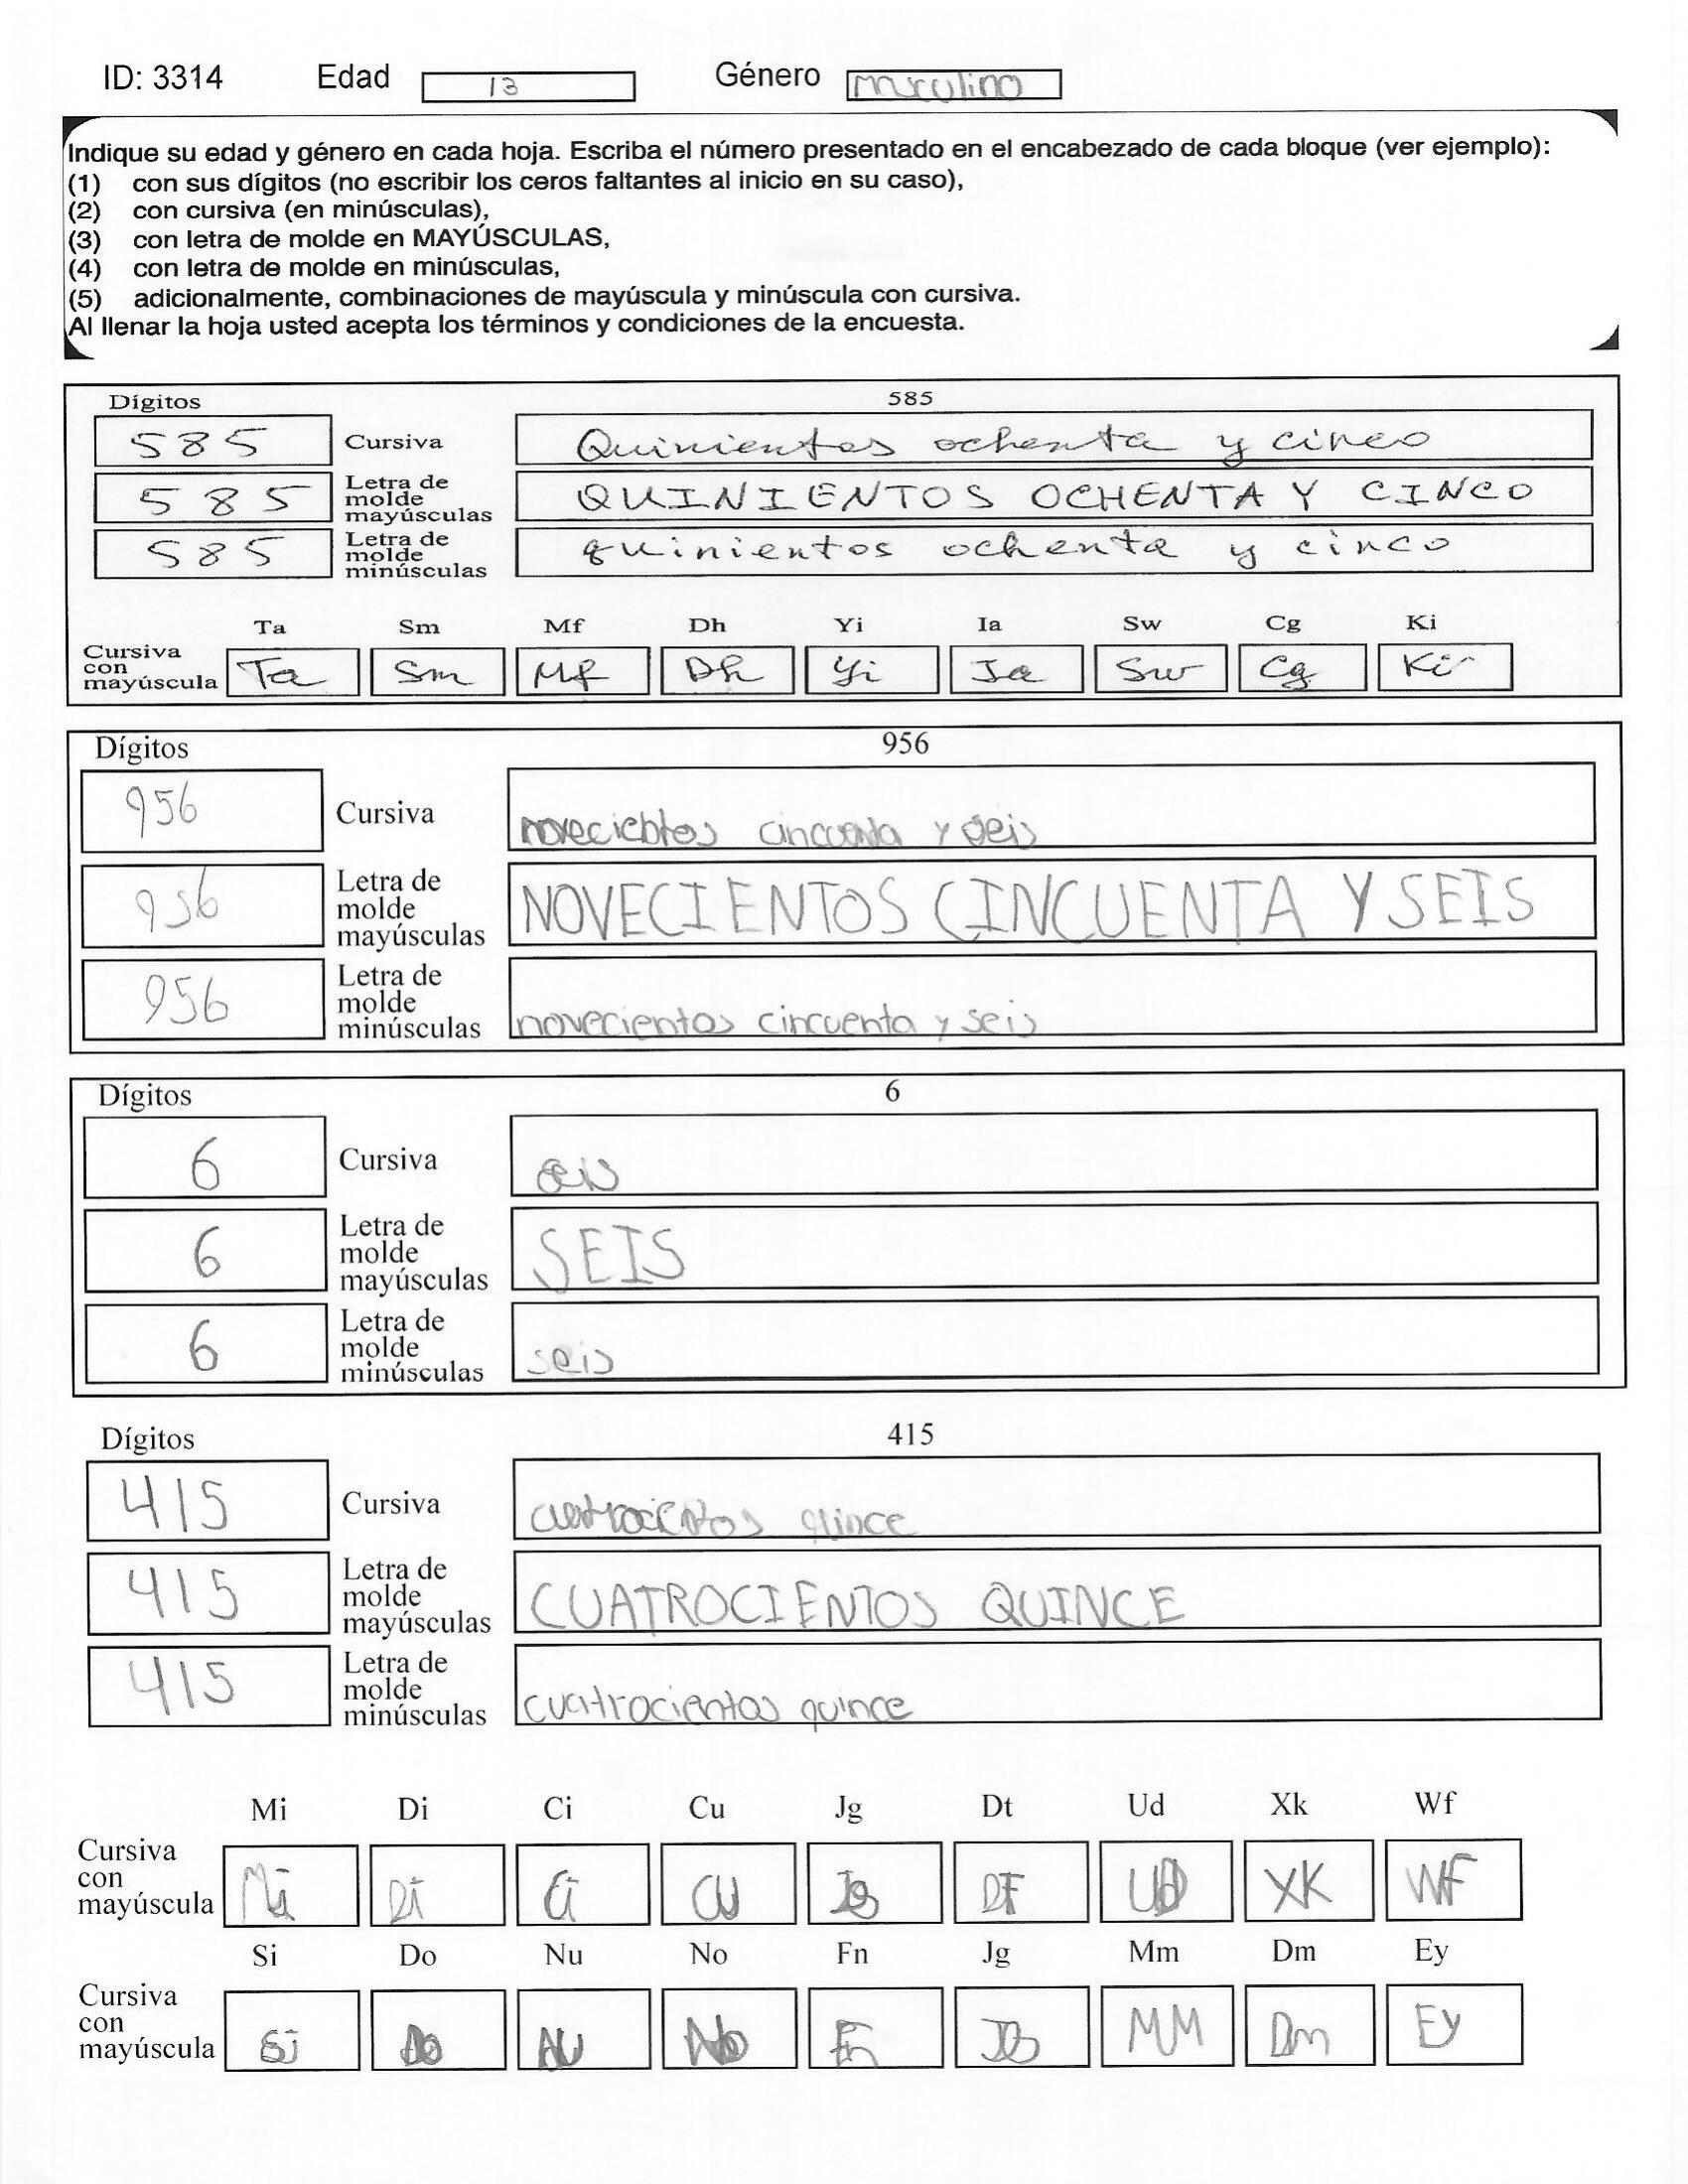 ID: 3314 Edad 13 Género
Indique su edad y género en cada hoja. Escriba el número presentado en el encabezado de cada bloque (ver ejemplo):
(1) con sus dígitos (no escribir los ceros faltantes al inicio en su caso),
(2) con cursiva (en minúsculas),
(3) con letra de molde en MAYÚSCULAS,
(4) con letra de molde en minúsculas,
(5) adicionalmente, combinaciones de mayúscula y minúscula con cursiva.
Al llenar la hoja usted acepta los términos y condiciones de la encuesta.
Dígitos 585
585 Cursiva Quinientos ochenta y cinco
585 Letra de molde mayúsculas QUINIENTOS OCHENTA Y CINCO
585 Letra de molde minúsculas quinientos ochenta y cinco
Ta Sm Mf Dh Yi Ia Sw Cg Ki
Cursiva con mayúscula Ta Sm Mf Dh Yi Ia Sw Cg Ki
Dígitos 956
956 Cursiva cincuenta y seis
956 Letra de molde mayúsculas NOVECIENTOS CINCUENTA Y SEIS
956 Letra de molde minúsculas novecientos cincuenta y seis
Dígitos 6
6 Cursiva seis
6 Letra de molde mayúsculas SEIS
6 Letra de molde minúsculas seis
Dígitos 415
415 Cursiva cuatrocientos quince
415 Letra de molde mayúsculas CUATROCIENTOS QUINCE
415 Letra de molde minúsculas cuatrocientos quince
Mi Di Ci Cu Jg Dt Ud Xk Wf
Cursiva con mayúscula Mi Di Ci CU DF XK WF
Si Do Nu No Fn Jg Mm Dm Ey
Cursiva con mayúscula Si Do NU No Fn MM Dm Ey